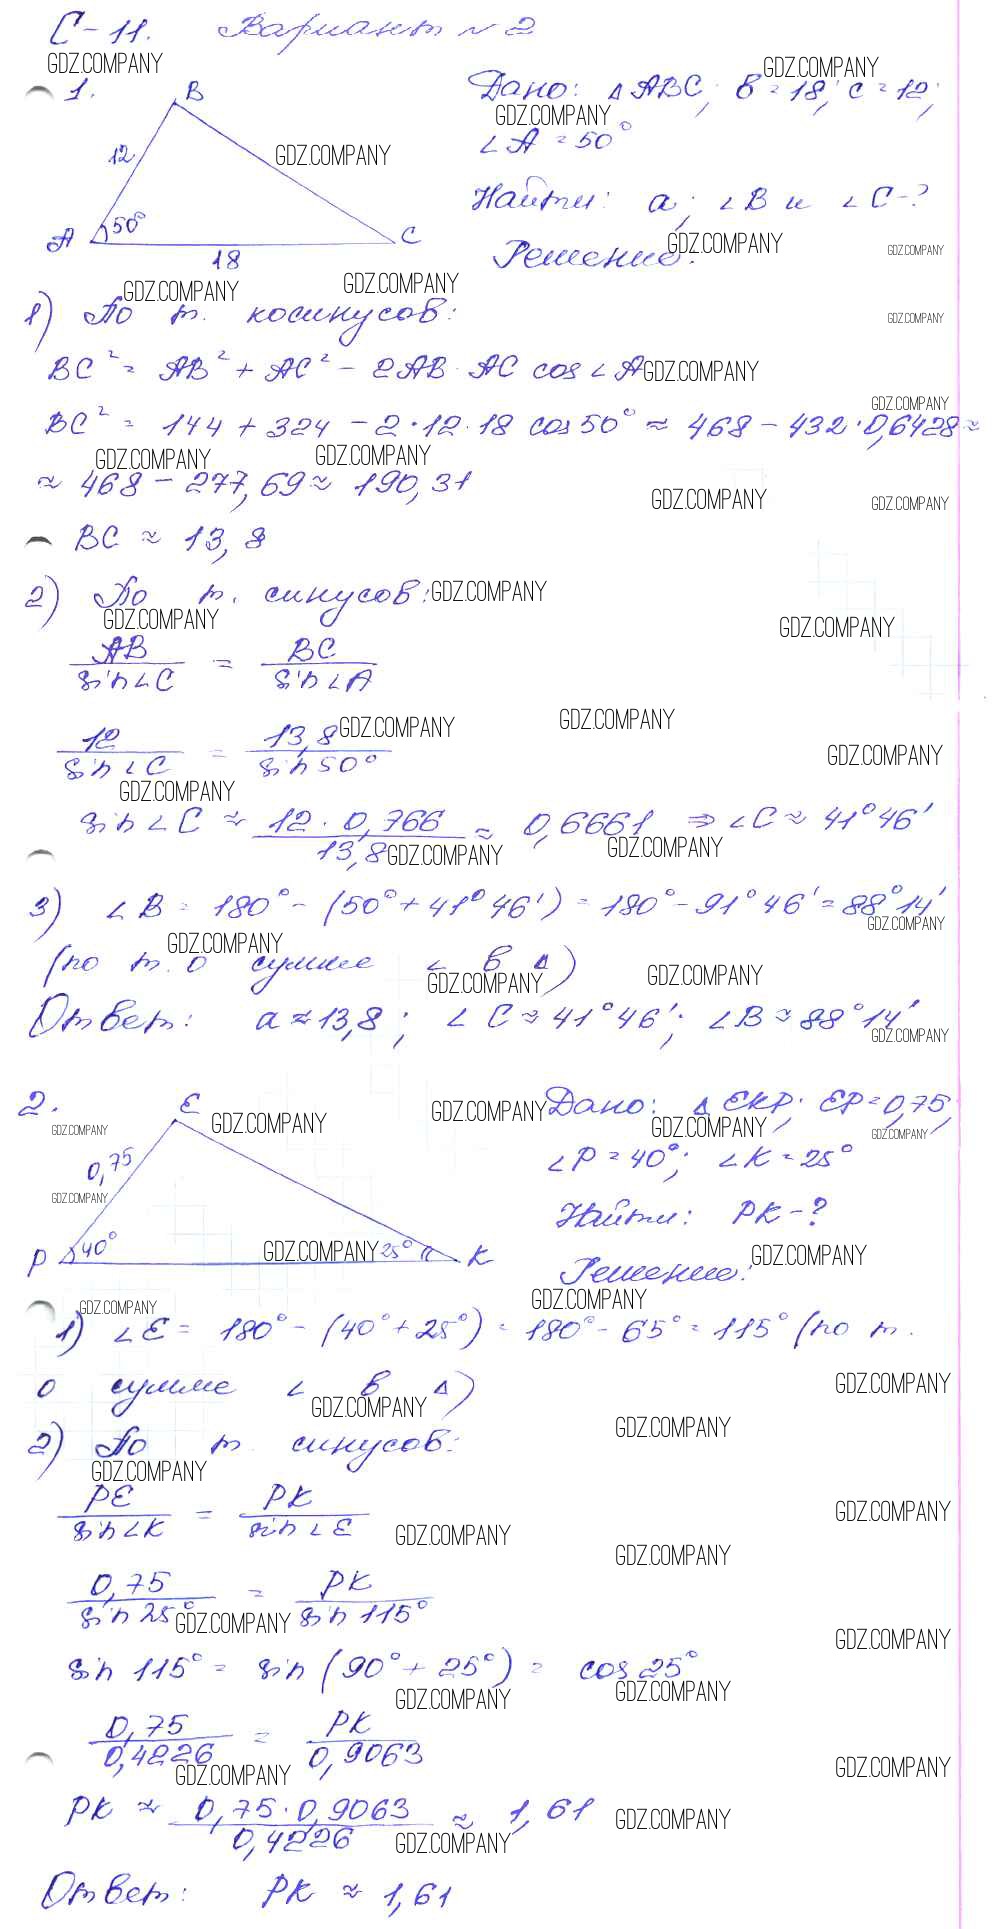 С-11. Вариант №2
GDZ.COMPANY
1. B
12
A 50° C
18
Дано: △ABC; b=18; c=12;
∠A=50°
Найти: a; ∠B и ∠C-?
Решение:
1) По т. косинусов:
BC² = AB² + AC² - 2AB·AC cos∠A
BC² = 144 + 324 - 2·12·18 cos50° ≈ 468 - 432·0,6428 ≈
≈ 468 - 277,69 ≈ 190,31
BC ≈ 13,8
2) По т. синусов:
AB/sin∠C = BC/sin∠A
12/sin∠C = 13,8/sin50°
sin∠C ≈ 12·0,766/13,8 ≈ 0,6661 ⇒ ∠C ≈ 41°46'
3) ∠B = 180° - (50° + 41°46') = 180° - 91°46' = 88°14'
(по т. о сумме ∠ в △)
Ответ: a ≈ 13,8; ∠C ≈ 41°46'; ∠B ≈ 88°14'
2. E
0,75
P 40° 25° K
Дано: △EKP; EP=0,75;
∠P=40°; ∠K=25°
Найти: PK-?
Решение:
1) ∠E = 180° - (40° + 25°) = 180° - 65° = 115° (по т.
о сумме ∠ в △)
2) По т. синусов:
PE/sin∠K = PK/sin∠E
0,75/sin25° = PK/sin115°
sin115° = sin(90° + 25°) = cos25°
0,75/0,4226 = PK/0,9063
PK ≈ 0,75·0,9063/0,4226 ≈ 1,61
Ответ: PK ≈ 1,61